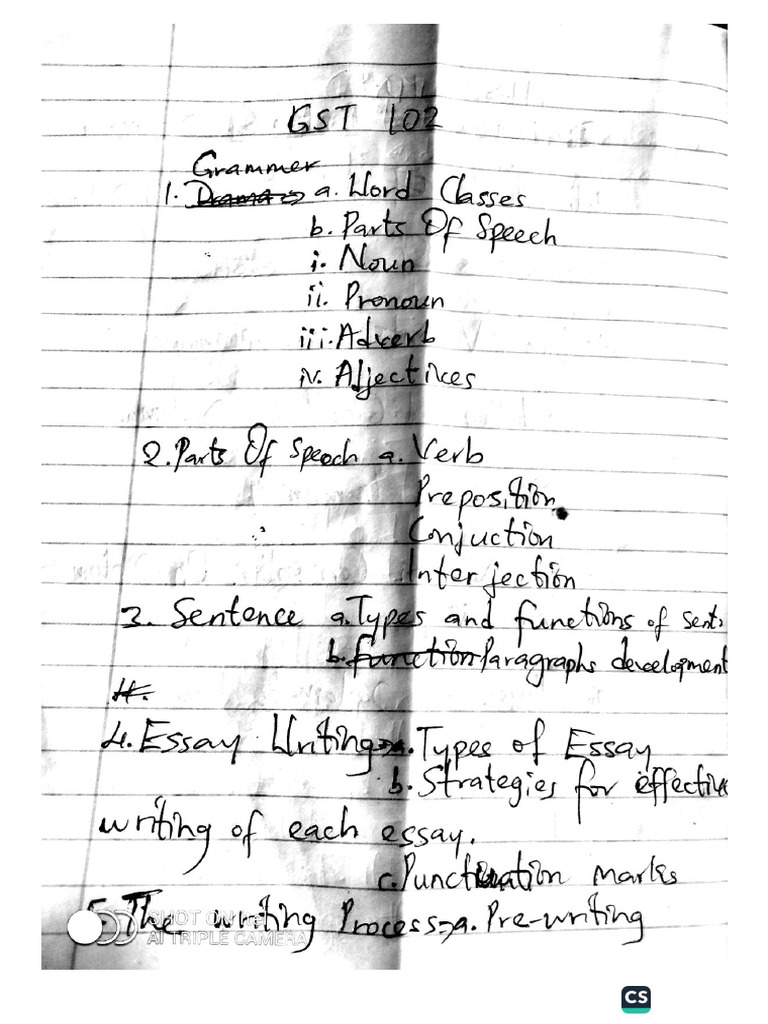 GST 102
Grammer
1. Drama => a. Word Classes
b. Parts Of Speech
i. Noun
ii. Pronoun
iii. Adverb
iv. Adjectives
2. Parts Of Speech a. Verb
Preposition
Conjuction
Interjection
3. Sentence a. Types and functions of sent.
b. Function Paragraphs development
4.
4. Essay Writing => a. Types of Essay
b. Strategies for effective
writing of each essay.
c. Punctuation marks
5. The writing Process => a. Pre-writing
SHOT ON
AI TRIPLE CAMERA
CS